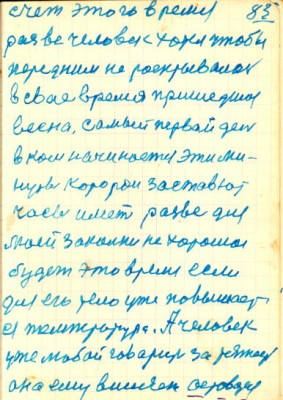 счет этого время 83
разве человек хотя чтобы
передним не роскрывалas
в свае время пришедшоя
весна, самый первай ден
в ком начинается эти ми-
нуты которои заставют
часы имет разве для
моей закалки не хорошоя
будет это время если
для его тело уже повышает-
ся температура. А человек
уже мабой говарит за
она ему